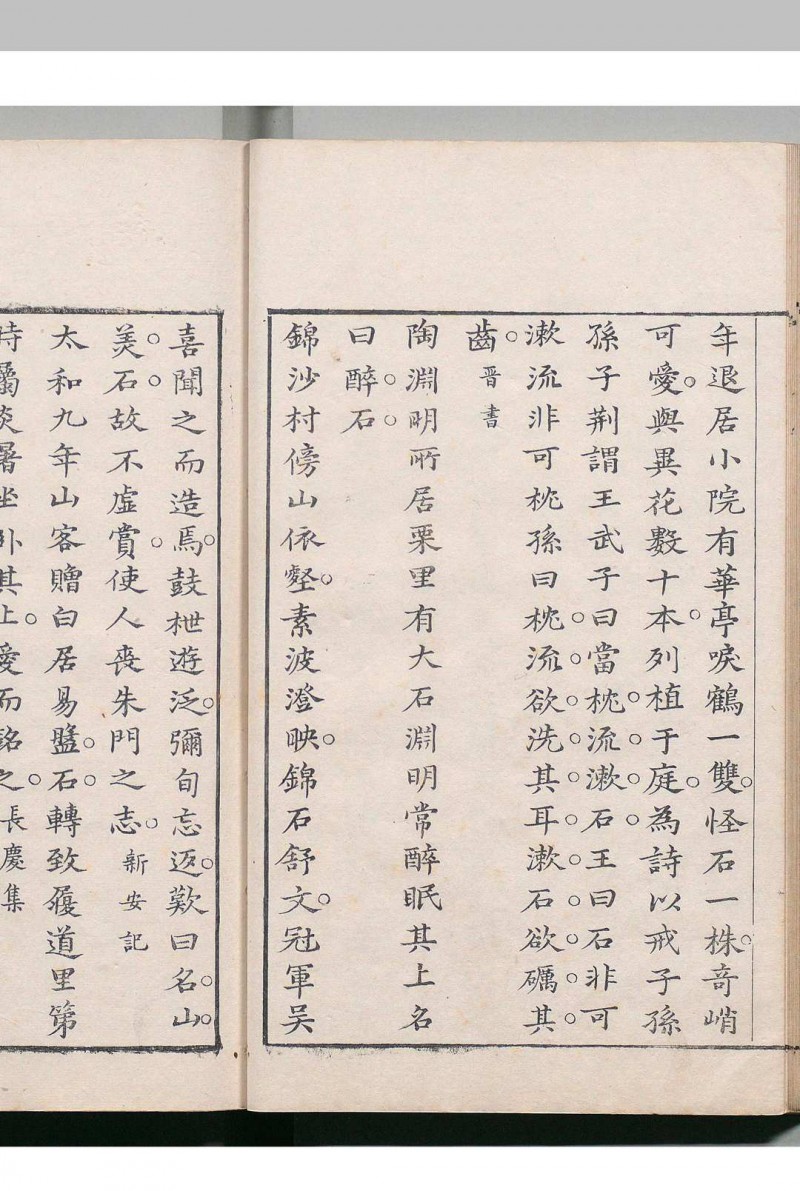 年退居小院有華亭唳鶴一雙怪石一株竒峭
可愛與異花數十本列植于庭為詩以戒子孫
孫子荆謂王武子曰當枕流漱石王曰石非可
漱流非可枕孫曰枕流欲洗其耳漱石欲礪其
齒晉書
陶淵明所居栗里有大石淵明常醉眠其上名
曰醉石
錦沙村傍山依壑素波澄映錦石舒文冠軍吳
喜聞之而造焉鼓枻遊泛彌旬忘返歎曰名山
美石故不虛賞使人喪朱門之志新安記
太和九年山客贈白居易盤石轉致履道里第
時屬炎暑坐卧其上愛而銘之長慶集